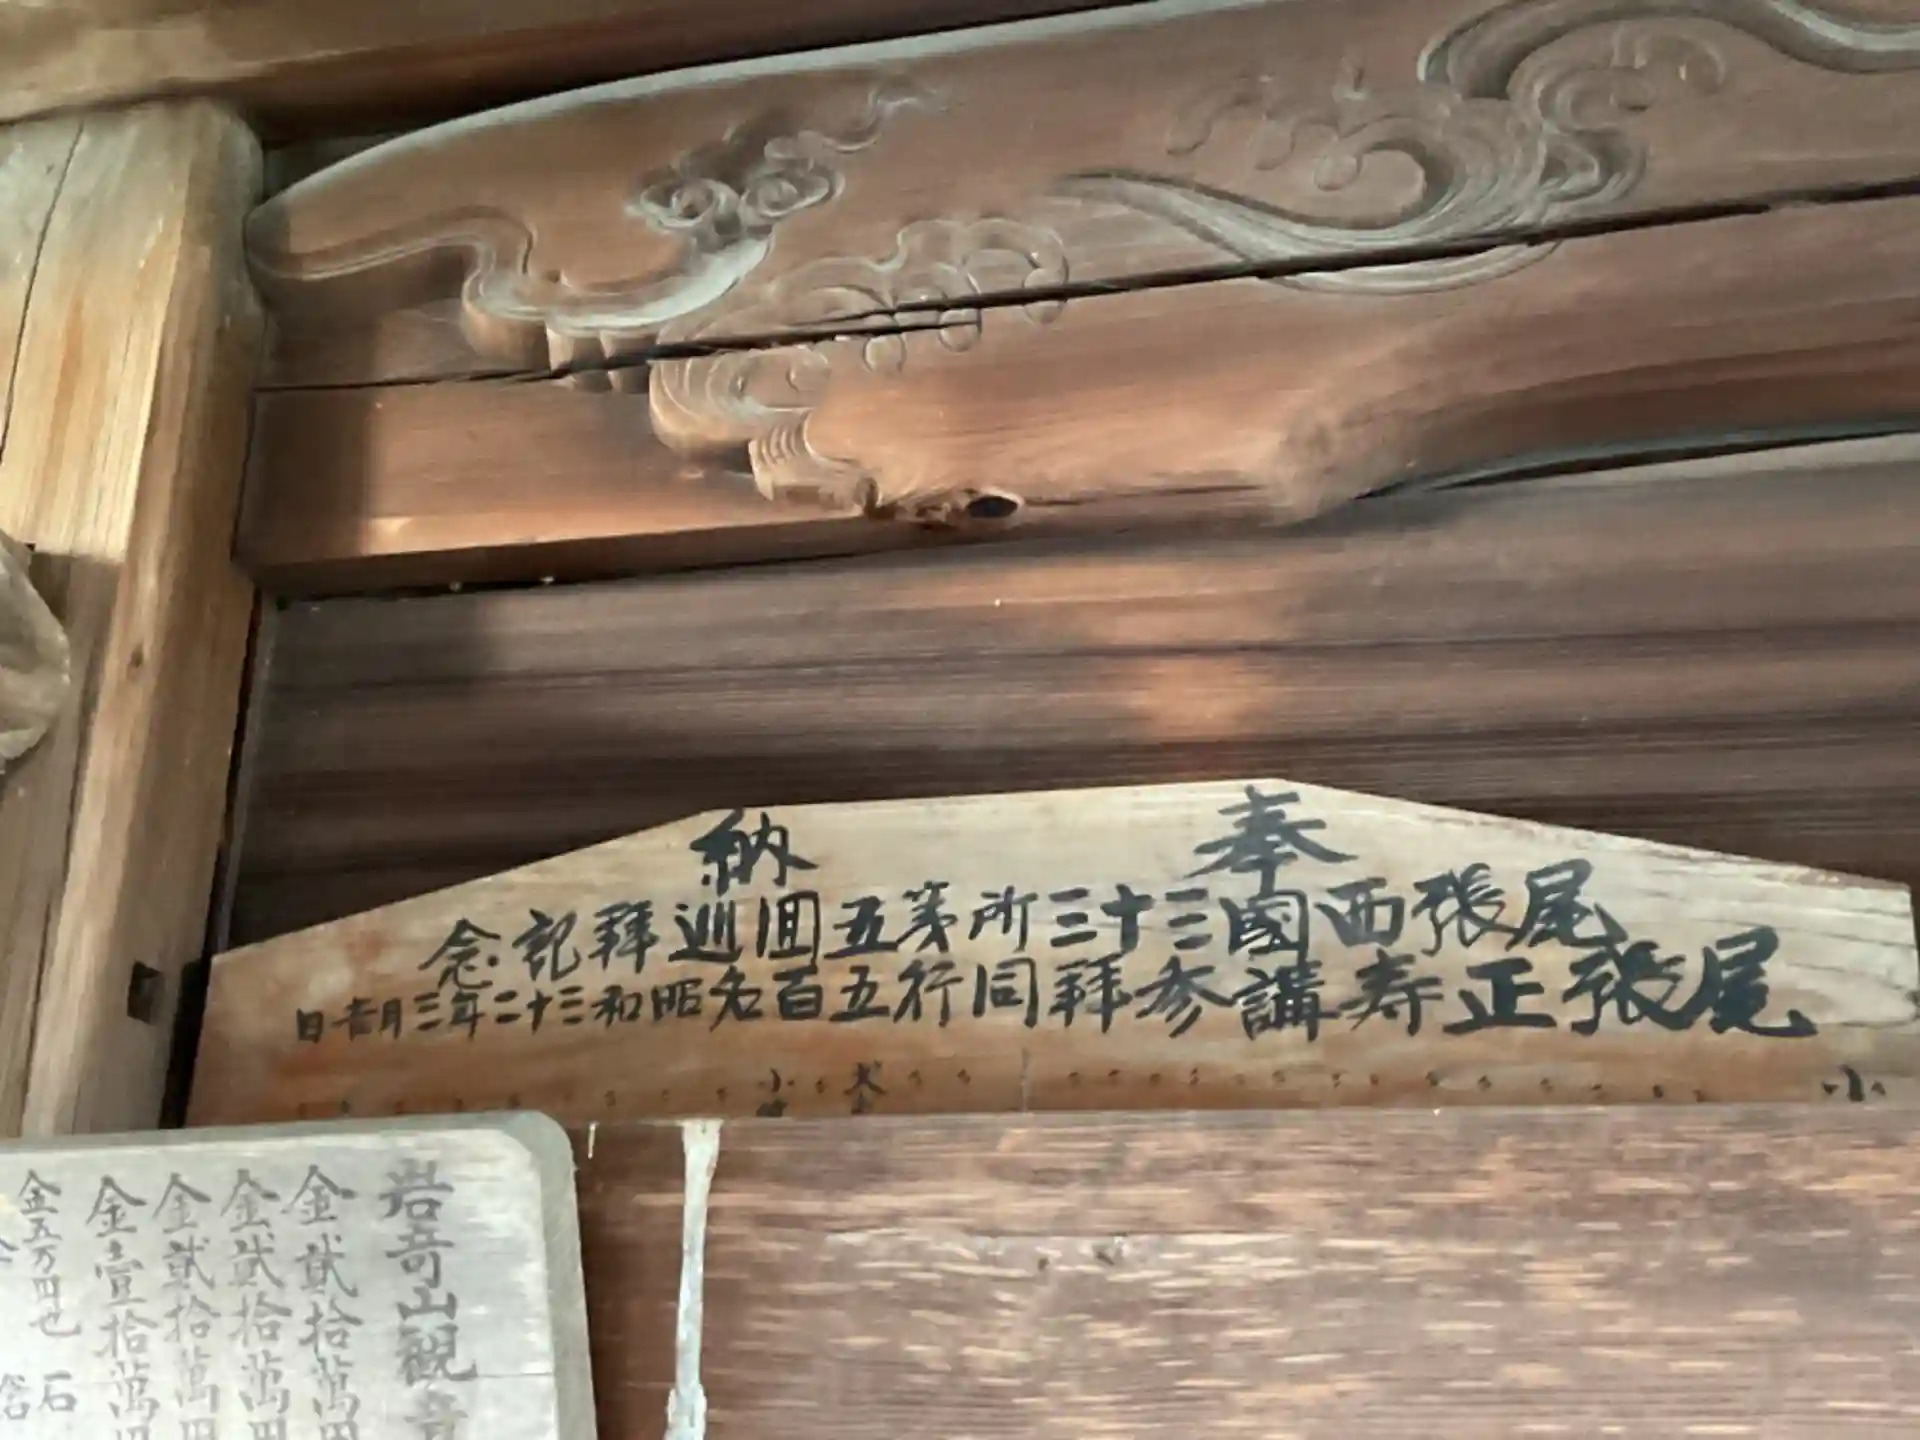 奉納
尾張西國三十三所第五回巡拜記念
尾張正寿講参拜同行五百名昭和三十二年三月吉日
小
大
小
岩奇山観音
金貳拾萬円
金貳拾萬円
金貳拾萬円
金壹拾萬円
金五万四也 石